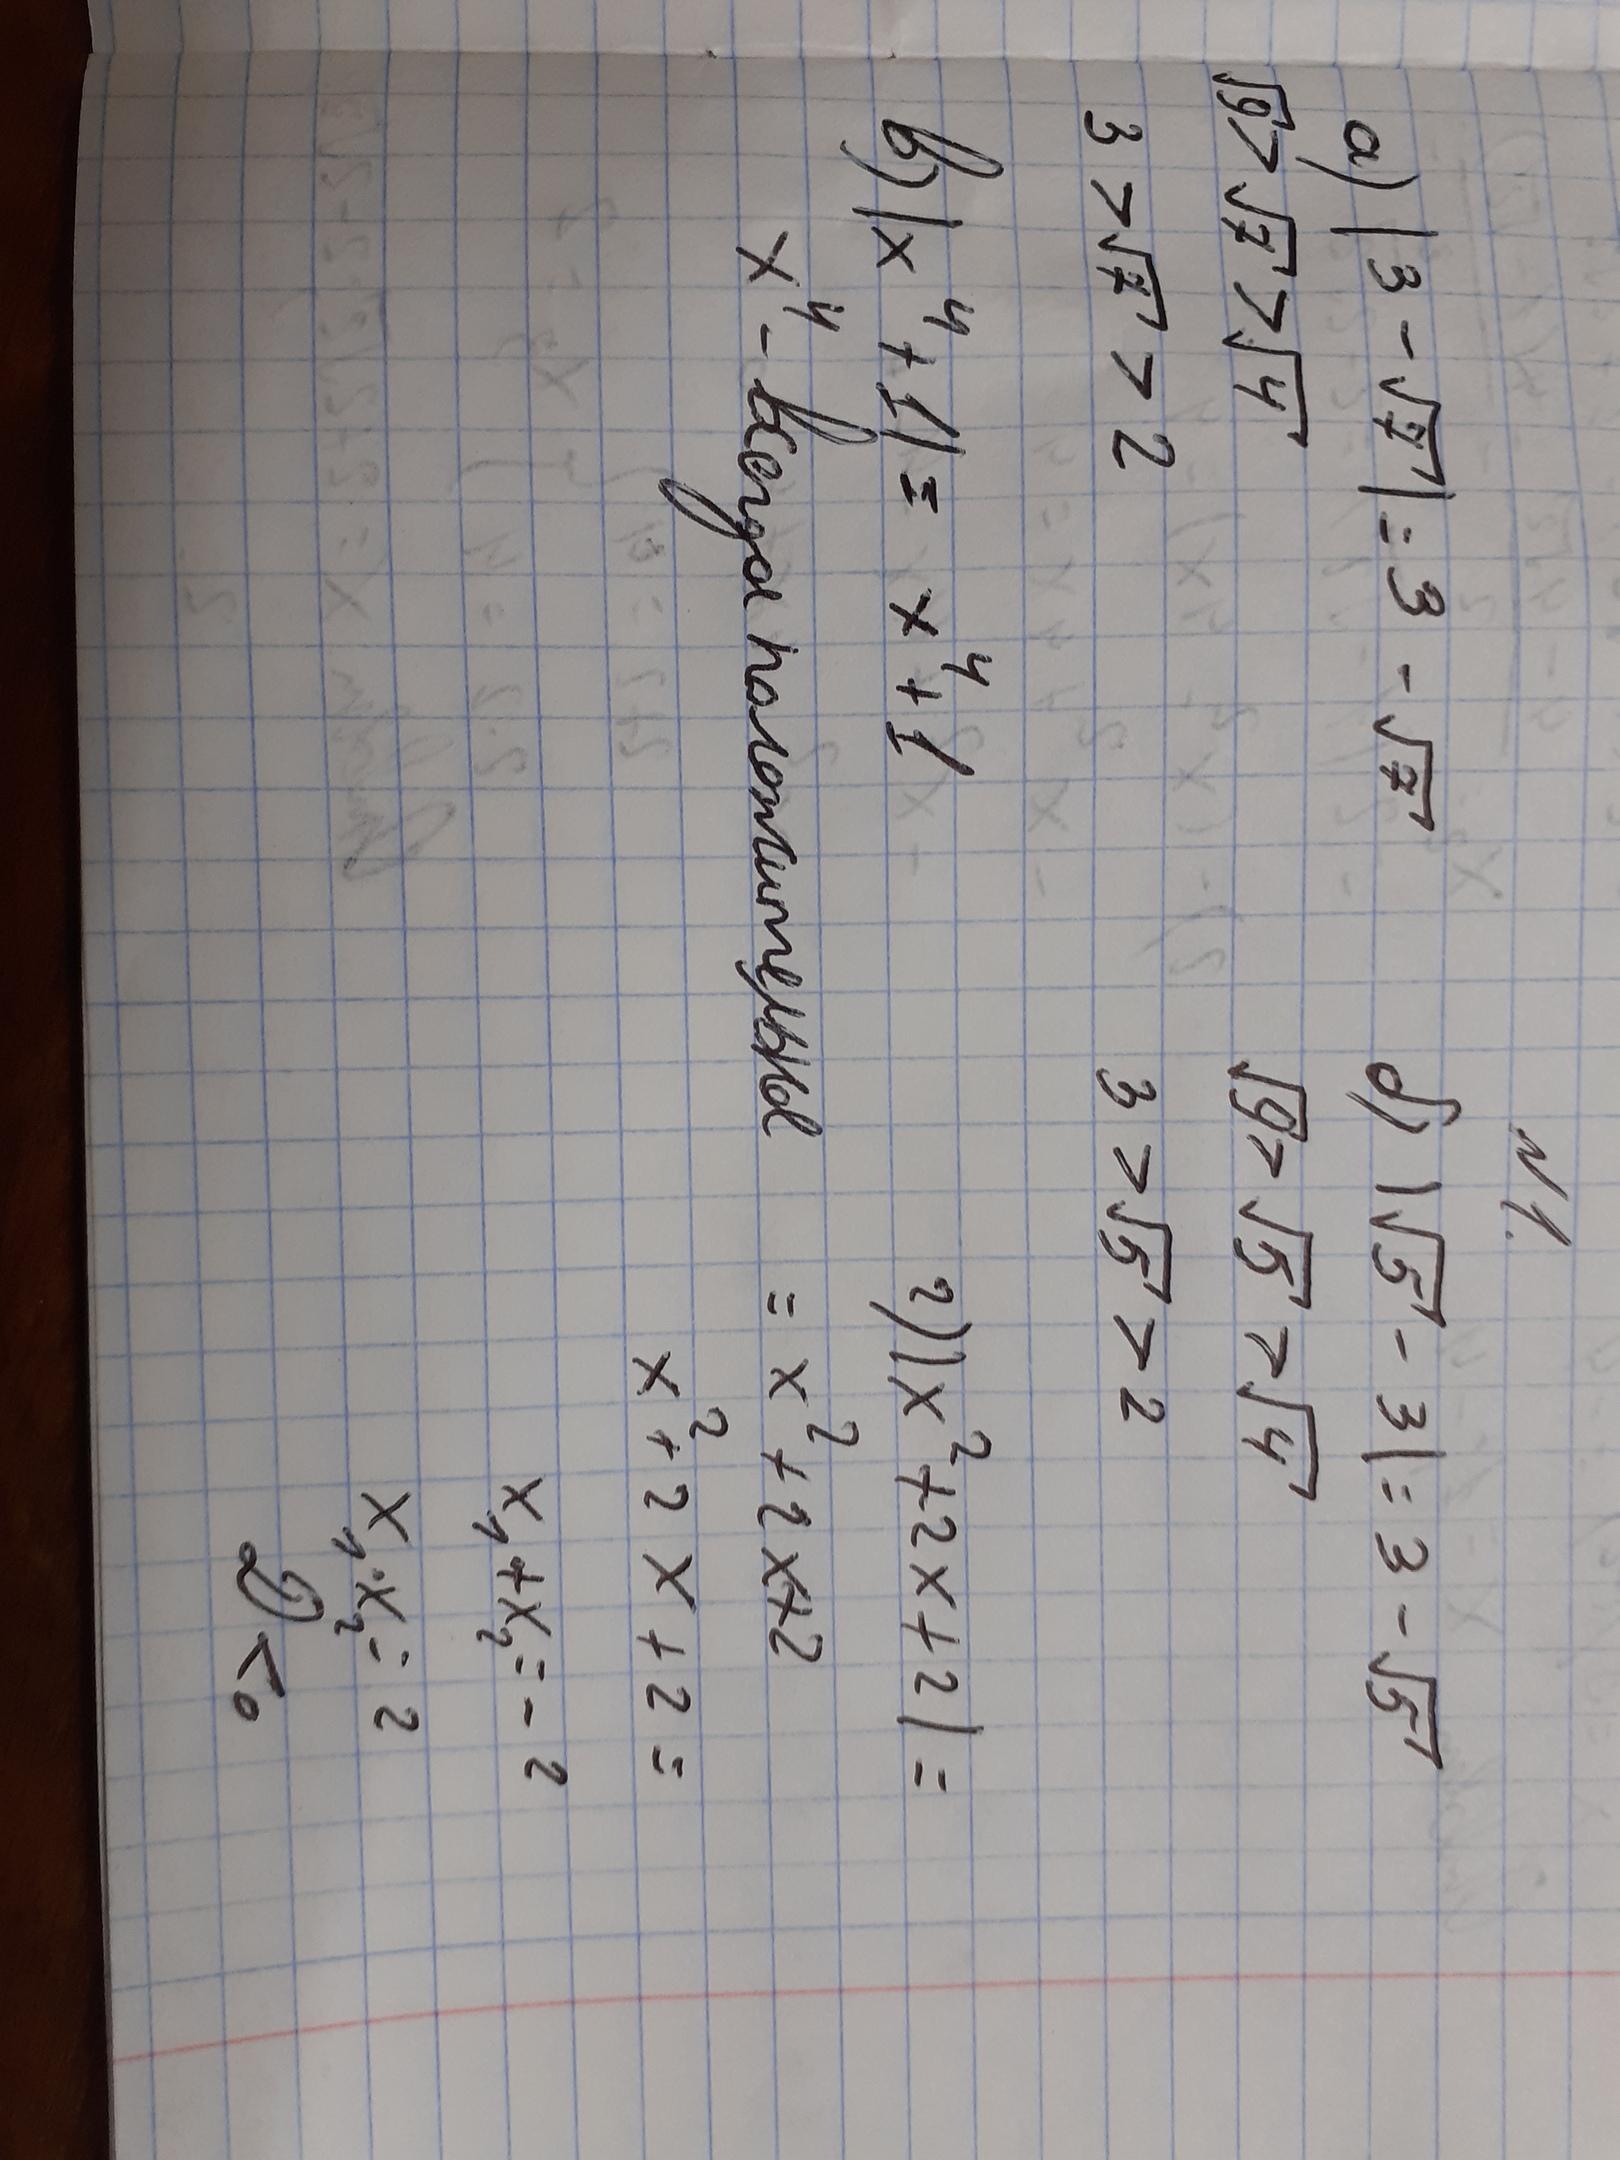 N1.
а) |3 - √7| = 3 - √7
√9 > √7 > √4
3 > √7 > 2
б) |√5 - 3| = 3 - √5
√9 > √5 > √4
3 > √5 > 2
в) |x⁴ + 1| = x⁴ + 1
x⁴ - всегда положительна
г) |x² + 2x + 2| =
= x² + 2x + 2
x² + 2x + 2 =
x₁ + x₂ = - 2
x₁ · x₂ = 2
D < 0